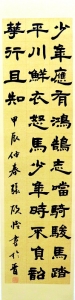 少年應有鴻鵠志當騎駿馬踏
平川鮮衣怒馬少年時不負韶
華行且知
甲辰仲春張
書於